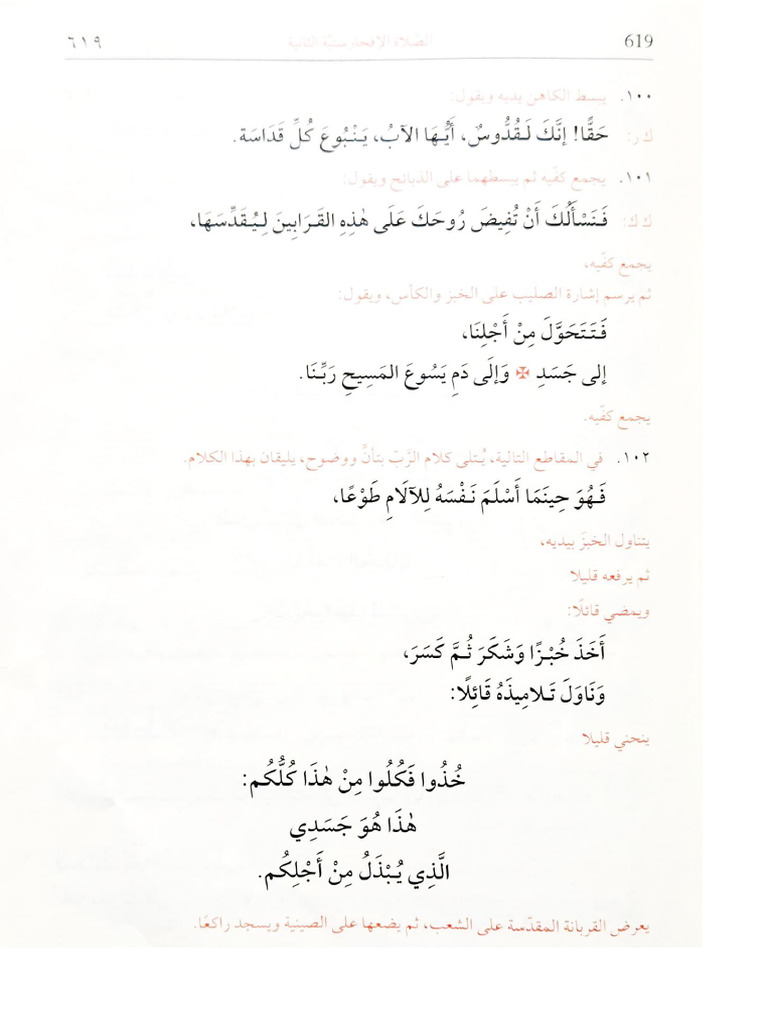 619 الصّلاة الإفخارستيّة الثانية ٦١٩
١٠٠. يبسط الكاهن يديه ويقول:
ك ر: حَقًّا! إنَّكَ لَقُدُّوسٌ، أَيُّهَا الآبُ، يَنْبُوعَ كُلِّ قَدَاسَة.
١٠١. يجمع كفّيه ثم يبسطهما على الذبائح ويقول:
ك ك: فَنَسْأَلُكَ أَنْ تُفِيضَ رُوحَكَ عَلَى هٰذِهِ القَرَابِينَ لِيُقَدِّسَهَا،
يجمع كفّيه،
ثم يرسم إشارة الصليب على الخبز والكأس، ويقول:
فَتَتَحَوَّلَ مِنْ أَجْلِنَا،
إلى جَسَدِ ✠ وَإلَى دَمِ يَسُوعَ المَسِيحِ رَبِّنَا.
يجمع كفّيه.
١٠٢. في المقاطع التالية، يُتلى كلام الرَّبّ بتأنٍّ ووضوح، يليقان بهذا الكلام.
فَهُوَ حِينَمَا أَسْلَمَ نَفْسَهُ لِلآلَامِ طَوْعًا،
يتناول الخبزَ بيديه،
ثم يرفعه قليلا
ويمضي قائلًا:
أَخَذَ خُبْزًا وَشَكَرَ ثُمَّ كَسَرَ،
وَنَاوَلَ تَلامِيذَهُ قَائِلًا:
ينحني قليلا
خُذُوا فَكُلُوا مِنْ هٰذَا كُلُّكُم:
هٰذَا هُوَ جَسَدِي
الَّذِي يُبْذَلُ مِنْ أَجْلِكُم.
يعرض القربانة المقدّسة على الشعب، ثم يضعها على الصينية ويسجد راكعًا.